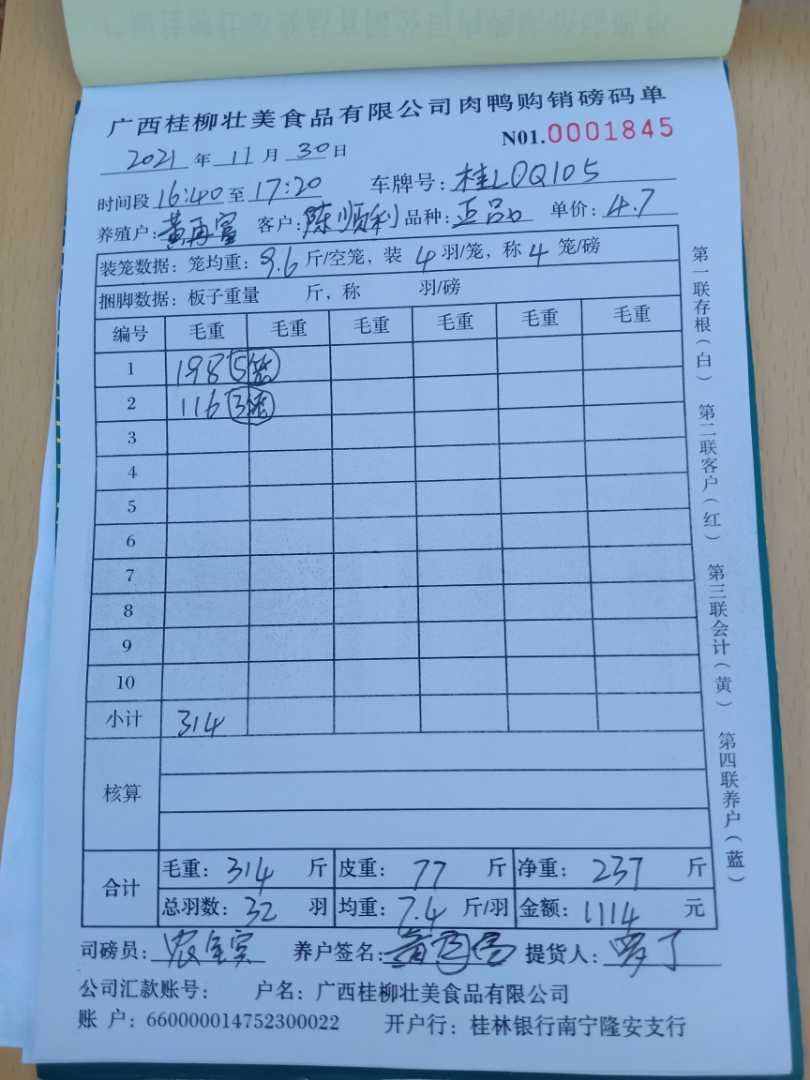 广西桂柳壮美食品有限公司肉鸭购销磅码单
2021年11月30日 N01.0001845
时间段16:40至17:20 车牌号:桂L0Q105
养殖户:黄再富 客户:陈顺利 品种:正品 单价:4.7
装笼数据:笼均重:9.6斤/空笼,装4羽/笼,称4笼/磅
捆脚数据:板子重量 斤,称 羽/磅
编号 毛重 毛重 毛重 毛重 毛重 毛重
1 198 5笼
2 116 3笼
3
4
5
6
7
8
9
10
小计 314
核算
合计 毛重:314斤 皮重:77斤 净重:237斤
总羽数:32羽 均重:7.4斤/羽 金额:1114元
司磅员: 养户签名: 提货人:
公司汇款账号: 户名:广西桂柳壮美食品有限公司
账 户:660000014752300022 开户行:桂林银行南宁隆安支行
第一联存根(白) 第二联客户(红) 第三联会计(黄) 第四联养户(蓝)